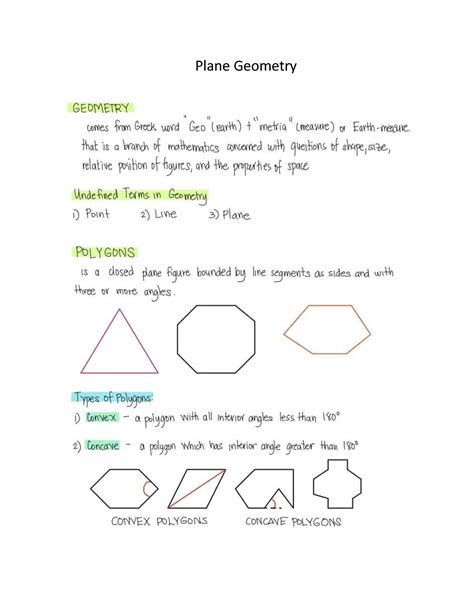 Plane Geometry
GEOMETRY
comes from Greek word "Geo" (earth) + "metria" (measure) or Earth-measure
that is a branch of mathematics concerned with questions of shape, size,
relative position of figures, and the properties of space
Undefined Terms in Geometry
1) Point 2) Line 3) Plane
POLYGONS
is a closed plane figure bounded by line segments as sides and with
three or more angles.
Types of Polygons:
1) Convex – a polygon with all interior angles less than 180°
2) Concave – a polygon which has interior angle greater than 180°
CONVEX POLYGONS CONCAVE POLYGONS